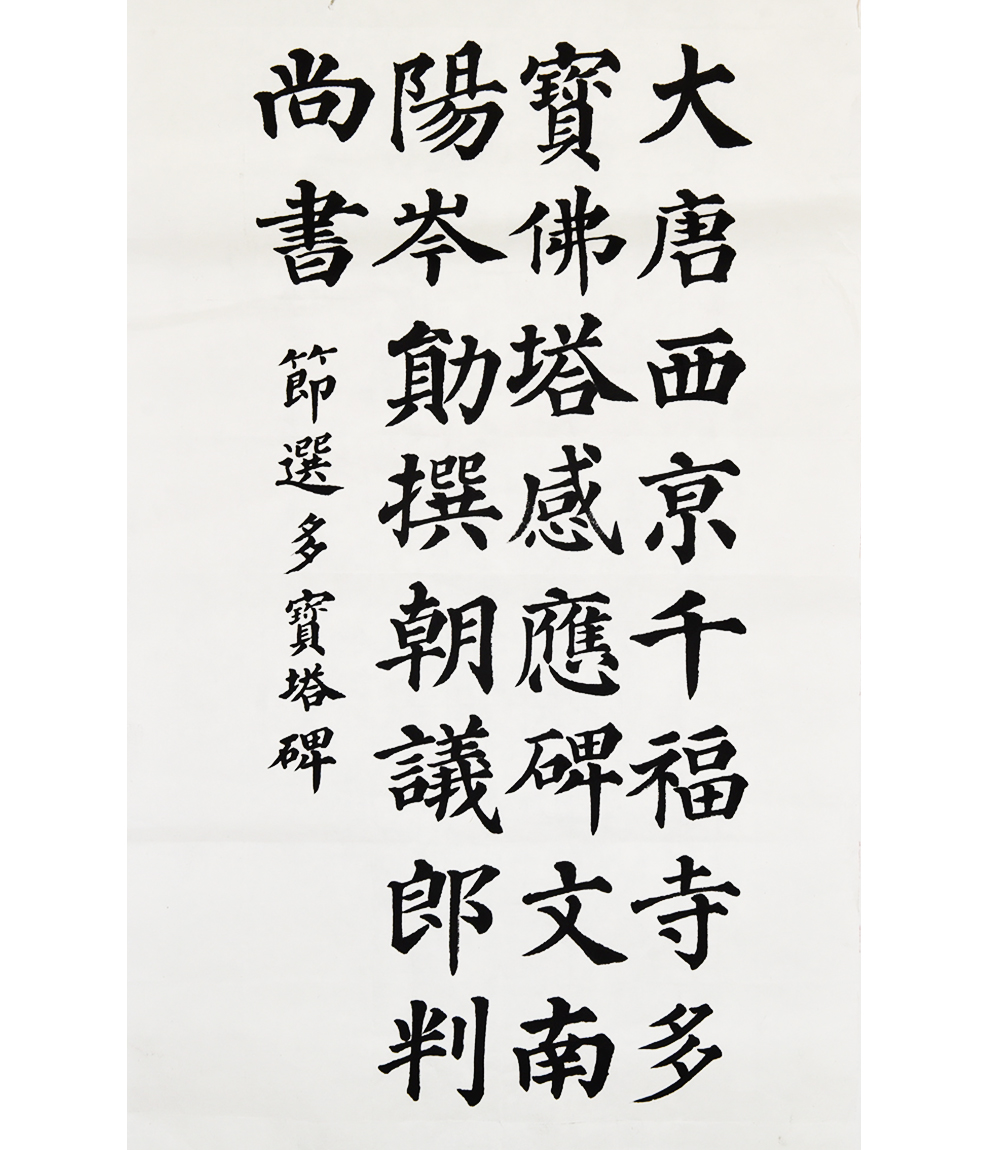 大唐西亰千福寺多
寶佛塔感應碑文南
陽岑勛撰朝議郎判
尚書
節選多寶塔碑